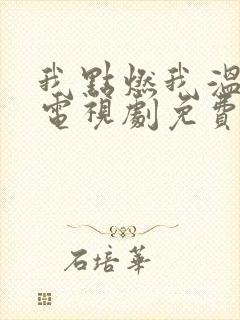 我點燃我溫
電視劇免費
石培華